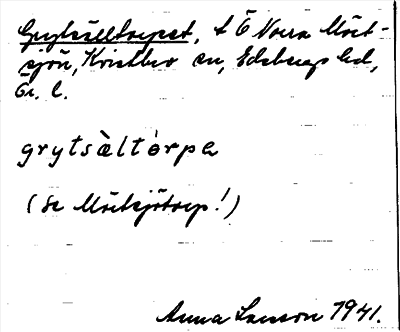 Grytsälltorpet, t Ö Norra Möet-
sjön, Kristbergs sn, Bobergs hd,
Ög. l.
grytsàltòrpə
(Se Möetsjötorp!)
Anna Larsson 1941.